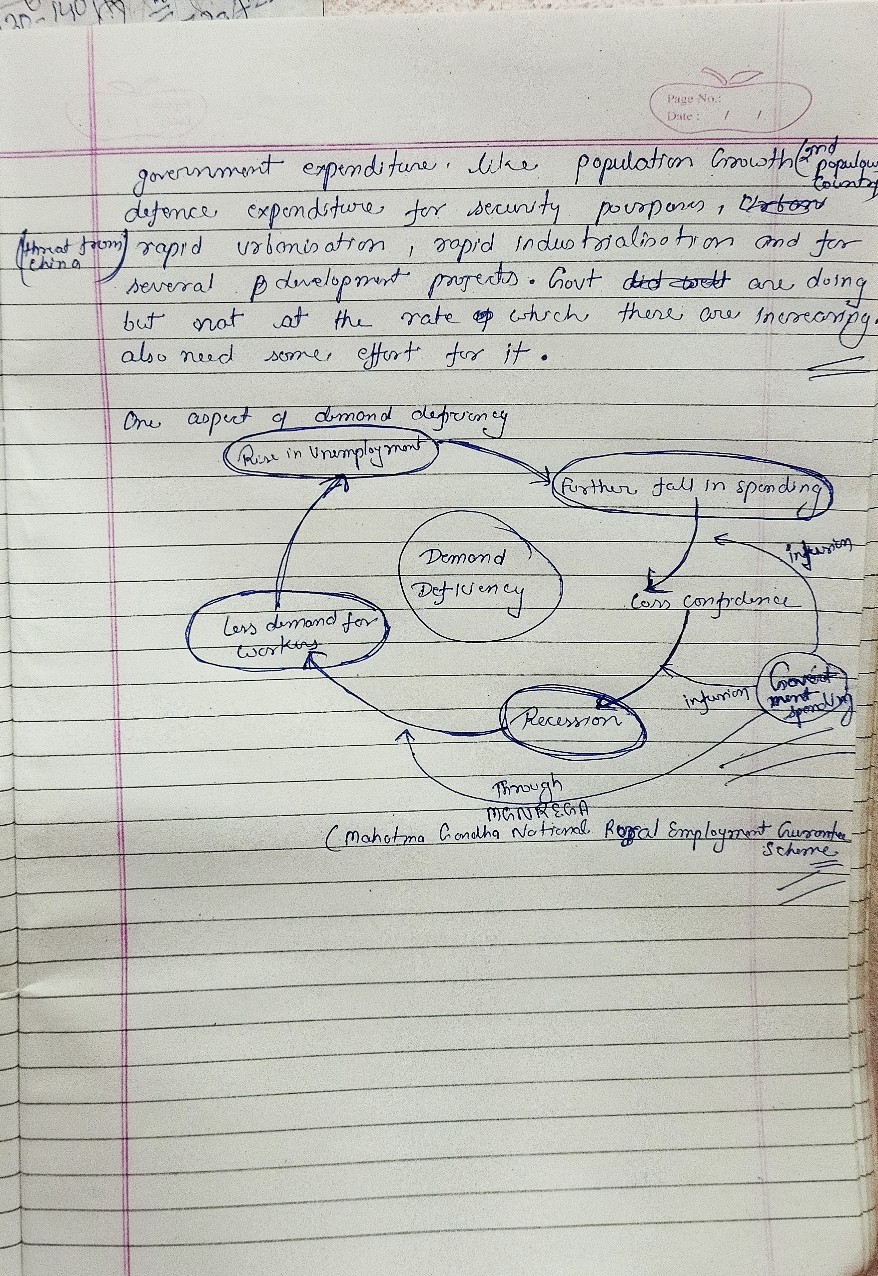 20-140
Page No.:
Date : / /
government expenditure. like population Growth (2nd populous Country)
defence expenditure for security pourposes, Urban
(threat from China) rapid urbanisation, rapid industrialisation and for
several development projects. Govt did well are doing
but not at the rate of which there are increasing.
also need some effort for it.
One aspect of demand deficiency
Rise in Unemployment
further fall in spending
infusion
Demand
Deficiency
Loss confidence
Less demand for
workers
Government
spending
infusion
Recession
Through
MGNREGA
(Mahatma Gandha National Rural Employment Gurantee
Scheme